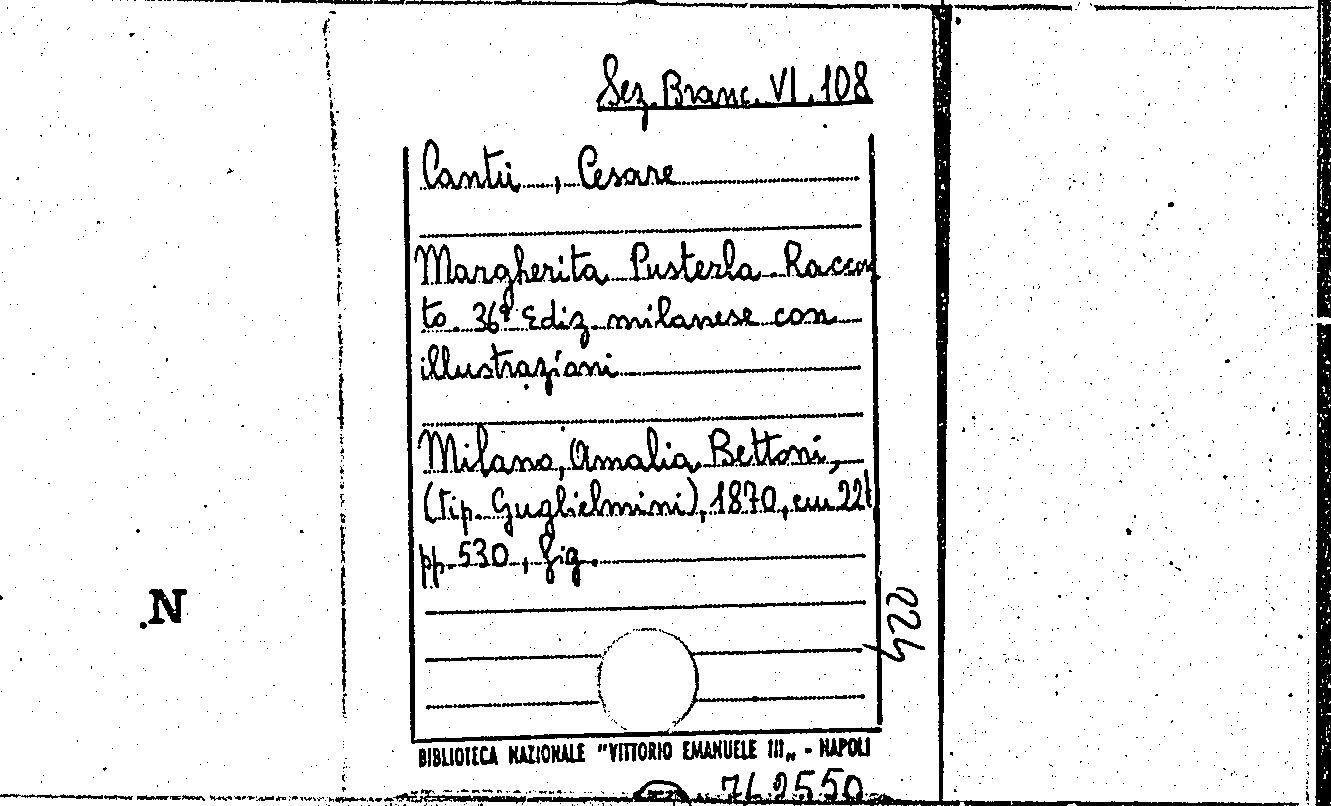 Sez. Branc. VI. 108
Cantù, Cesare
Margherita Pusterla. Raccon
to. 36ª Ediz. milanese con
illustrazioni
Milano, Amalia Bettoni,
(tip. Guglielmini), 1870, cm 22,
pp. 530, fig.
.N
BIBLIOTECA NAZIONALE "VITTORIO EMANUELE III„ - NAPOLI